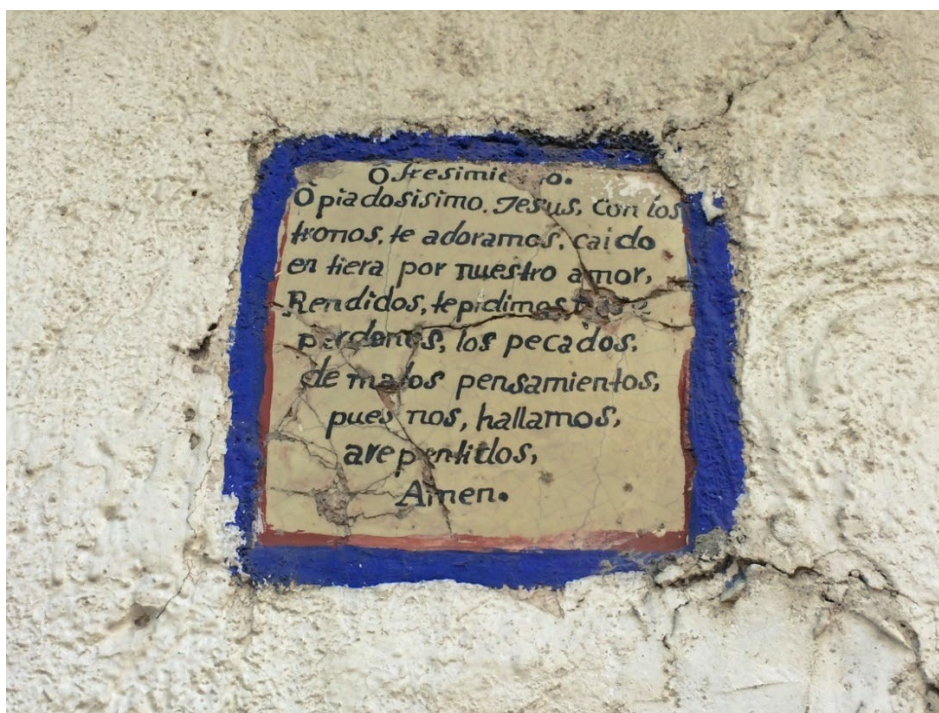 Ò piadosisimo. Jesus, con los
tronos, te adoramos, caido
en tiera por nuestro amor,
Rendidos, te pidimos,
perdones, los pecados,
de malos pensamientos,
pues nos, hallamos,
arepentidos,
Amen.